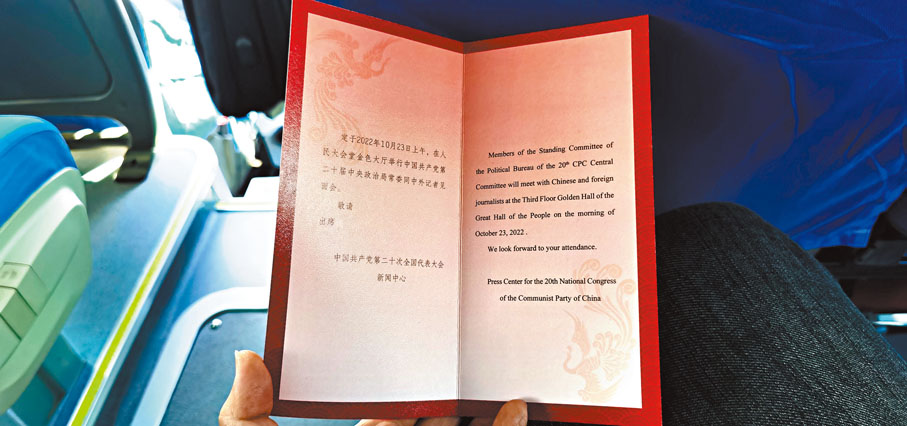 定于2022年10月23日上午，在人
民大会堂金色大厅举行中国共产党第
二十届中央政治局常委同中外记者见
面会。
敬请
出席
中国共产党第二十次全国代表大会
新闻中心
Members of the Standing Committee of
the Political Bureau of the 20th CPC Central
Committee will meet with Chinese and foreign
journalists at the Third Floor Golden Hall of the
Great Hall of the People on the morning of
October 23, 2022 .
We look forward to your attendance.
Press Center for the 20th National Congress
of the Communist Party of China